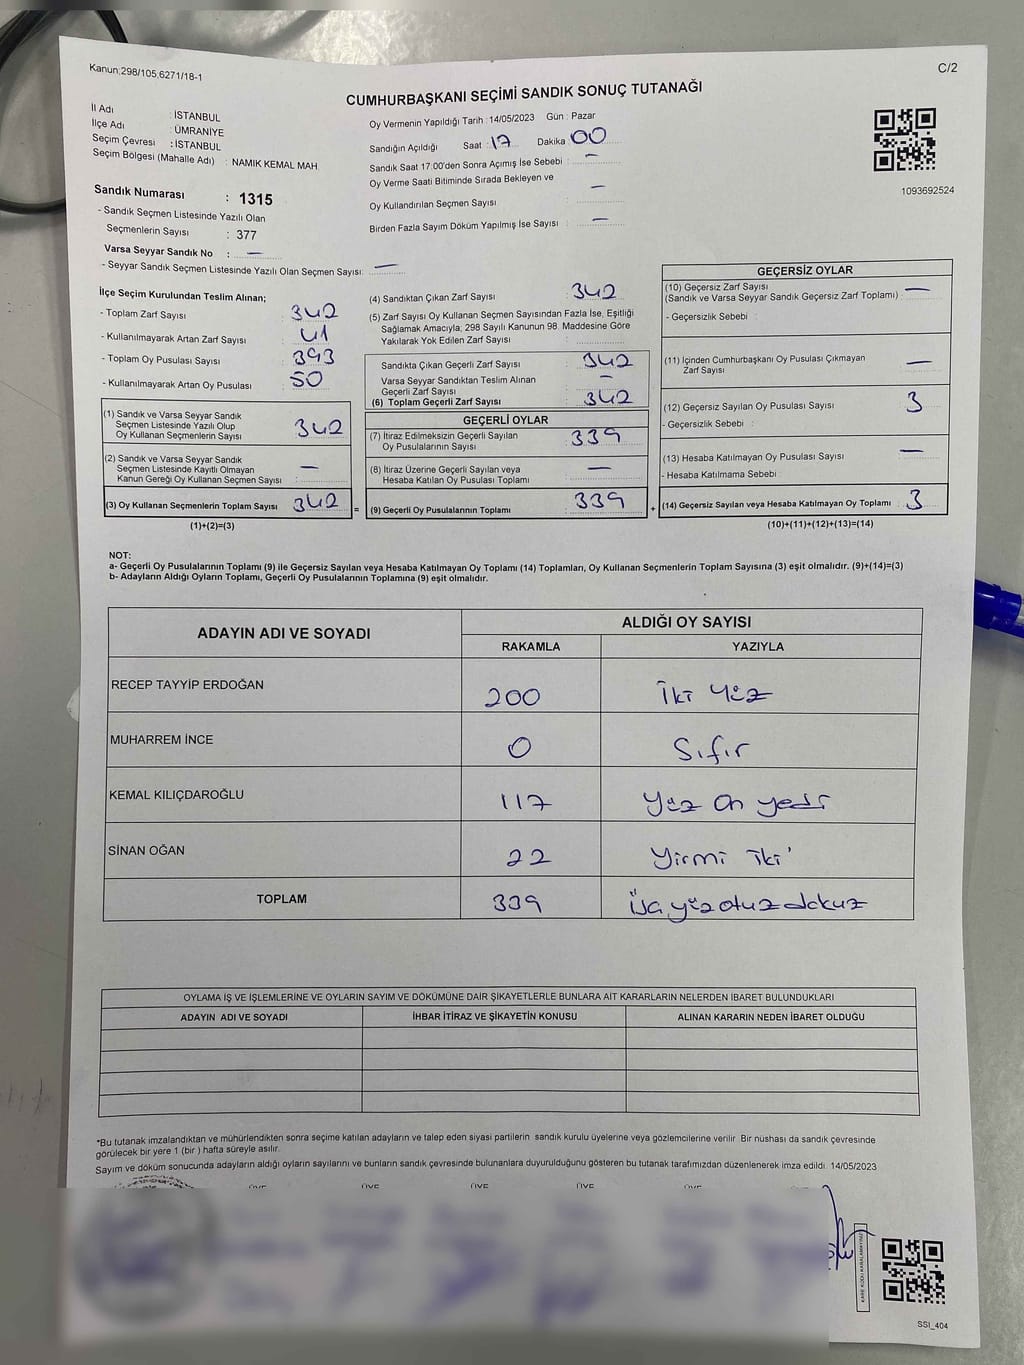 Kanun;298/105,6271/18-1
C/2
CUMHURBAŞKANI SEÇİMİ SANDIK SONUÇ TUTANAĞI
İl Adı : İSTANBUL
İlçe Adı : ÜMRANİYE
Seçim Çevresi : İSTANBUL
Seçim Bölgesi (Mahalle Adı) : NAMIK KEMAL MAH.
Sandık Numarası : 1315
- Sandık Seçmen Listesinde Yazılı Olan
Seçmenlerin Sayısı : 377
Varsa Seyyar Sandık No : —
- Seyyar Sandık Seçmen Listesinde Yazılı Olan Seçmen Sayısı: —
Oy Vermenin Yapıldığı Tarih : 14/05/2023 Gün : Pazar
Sandığın Açıldığı Saat : 17 Dakika 00
Sandık Saat 17:00'den Sonra Açımış İse Sebebi : —
Oy Verme Saati Bitiminde Sırada Bekleyen ve
Oy Kullandırılan Seçmen Sayısı : —
Birden Fazla Sayım Döküm Yapılmış İse Sayısı : —
1093692524
İlçe Seçim Kurulundan Teslim Alınan;
- Toplam Zarf Sayısı : 342
- Kullanılmayarak Artan Zarf Sayısı : 41
- Toplam Oy Pusulası Sayısı : 393
- Kullanılmayarak Artan Oy Pusulası : 50
(1) Sandık ve Varsa Seyyar Sandık
Seçmen Listesinde Yazılı Olup
Oy Kullanan Seçmenlerin Sayısı : 342
(2) Sandık ve Varsa Seyyar Sandık
Seçmen Listesinde Kayıtlı Olmayan
Kanun Gereği Oy Kullanan Seçmen Sayısı : —
(3) Oy Kullanan Seçmenlerin Toplam Sayısı : 342
(1)+(2)=(3)
(4) Sandıktan Çıkan Zarf Sayısı : 342
(5) Zarf Sayısı Oy Kullanan Seçmen Sayısından Fazla İse, Eşitliği
Sağlamak Amacıyla, 298 Sayılı Kanunun 98. Maddesine Göre
Yakılarak Yok Edilen Zarf Sayısı :
Sandıkta Çıkan Geçerli Zarf Sayısı : 342
Varsa Seyyar Sandıktan Teslim Alınan
Geçerli Zarf Sayısı : —
(6) Toplam Geçerli Zarf Sayısı : 342
GEÇERLİ OYLAR
(7) İtiraz Edilmeksizin Geçerli Sayılan
Oy Pusulalarının Sayısı : 339
(8) İtiraz Üzerine Geçerli Sayılan veya
Hesaba Katılan Oy Pusulası Toplamı : —
= (9) Geçerli Oy Pusulalarının Toplamı : 339 +
GEÇERSİZ OYLAR
(10) Geçersiz Zarf Sayısı : —
(Sandık ve Varsa Seyyar Sandık Geçersiz Zarf Toplamı)
- Geçersizlik Sebebi :
(11) İçinden Cumhurbaşkanı Oy Pusulası Çıkmayan
Zarf Sayısı : —
(12) Geçersiz Sayılan Oy Pusulası Sayısı : 3
- Geçersizlik Sebebi :
(13) Hesaba Katılmayan Oy Pusulası Sayısı : —
- Hesaba Katılmama Sebebi :
(14) Geçersiz Sayılan veya Hesaba Katılmayan Oy Toplamı : 3
(10)+(11)+(12)+(13)=(14)
NOT:
a- Geçerli Oy Pusulalarının Toplamı (9) ile Geçersiz Sayılan veya Hesaba Katılmayan Oy Toplamı (14) Toplamları, Oy Kullanan Seçmenlerin Toplam Sayısına (3) eşit olmalıdır. (9)+(14)=(3)
b- Adayların Aldığı Oyların Toplamı, Geçerli Oy Pusulalarının Toplamına (9) eşit olmalıdır.
ADAYIN ADI VE SOYADI
ALDIĞI OY SAYISI
RAKAMLA YAZIYLA
RECEP TAYYİP ERDOĞAN 200 İki Yüz
MUHARREM İNCE 0 Sıfır
KEMAL KILIÇDAROĞLU 117 Yüz On yedi
SİNAN OĞAN 22 Yirmi iki
TOPLAM 339 üç yüz otuz dokuz
OYLAMA İŞ VE İŞLEMLERİNE VE OYLARIN SAYIM VE DÖKÜMÜNE DAİR ŞİKAYETLERLE BUNLARA AİT KARARLARIN NELERDEN İBARET BULUNDUKLARI
ADAYIN ADI VE SOYADI İHBAR İTİRAZ VE ŞİKAYETİN KONUSU ALINAN KARARIN NEDEN İBARET OLDUĞU
*Bu tutanak imzalandıktan ve mühürlendikten sonra seçime katılan adayların ve talep eden siyasi partilerin sandık kurulu üyelerine veya gözlemcilerine verilir. Bir nüshası da sandık çevresinde
görülecek bir yere 1 (bir ) hafta süreyle asılır.
Sayım ve döküm sonucunda adayların aldığı oyların sayılarını ve bunların sandık çevresinde bulunanlara duyurulduğunu gösteren bu tutanak tarafımızdan düzenlenerek imza edildi. 14/05/2023
ÜYE ÜYE ÜYE ÜYE ÜYE
KARE KODU KARALAMAYINIZ
SSI_404